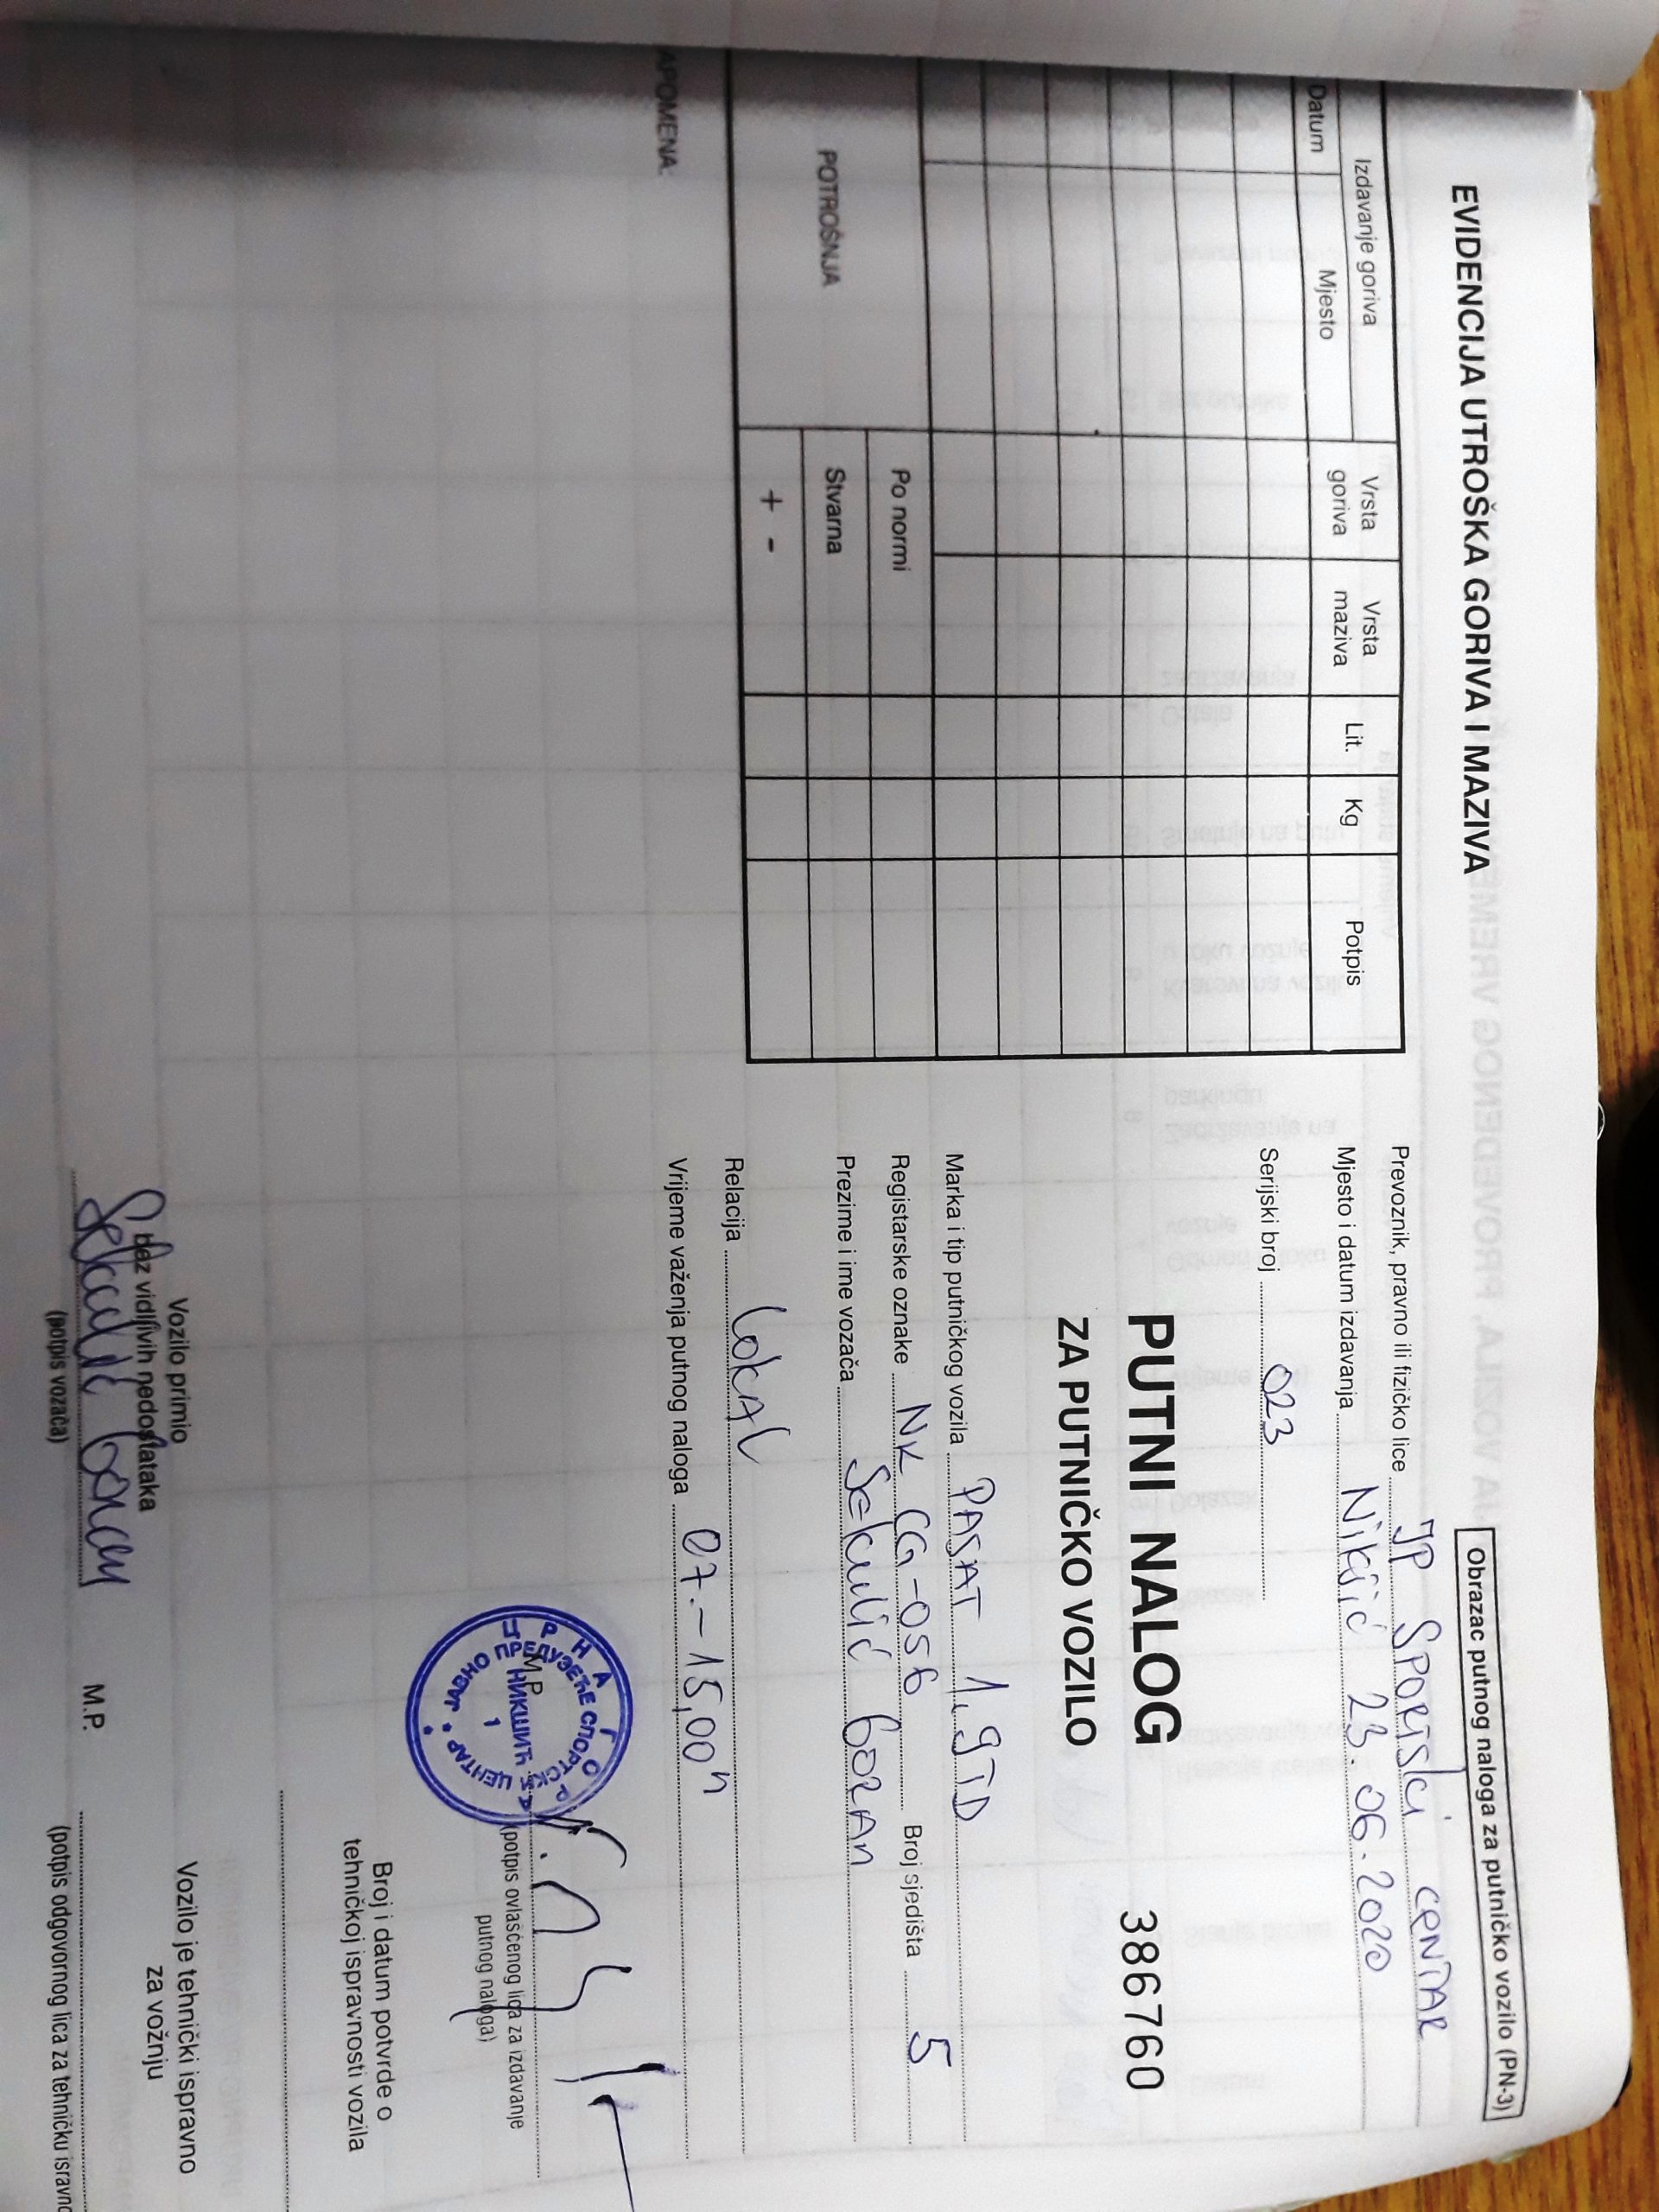 EVIDENCIJA UTROŠKA GORIVA I MAZIVA
Izdavanje goriva
Datum
Mjesto
Vrsta goriva
Vrsta maziva
Lit.
Kg
Potpis
POTROŠNJA
Po normi
Stvarna
+ -
APOMENA:
Obrazac putnog naloga za putničko vozilo (PN-3)
Prevoznik, pravno ili fizičko lice JP SPORTSKI CENTAR
Mjesto i datum izdavanja Nikšić 23.06.2020
Serijski broj 023
PUTNI NALOG 386760
ZA PUTNIČKO VOZILO
Marka i tip putničkog vozila PASAT 1,9TD
Registarske oznake NK CG-056 Broj sjedišta 5
Prezime i ime vozača Sekulić Goran
Relacija LOKAL
Vrijeme važenja putnog naloga 07.-15,00h
ЦРНА ГОРА
ЈАВНО ПРЕДУЗЕЋЕ СПОРТСКИ ЦЕНТАР
НИКШИЋ
1
M.P.
(potpis ovlašćenog lica za izdavanje
putnog naloga)
Broj i datum potvrde o
tehničkoj ispravnosti vozila
Vozilo primio
bez vidljivih nedostataka
Sekulić Goran
(potpis vozača)
M.P.
Vozilo je tehnički ispravno
za vožnju
(potpis odgovornog lica za tehničku isravno